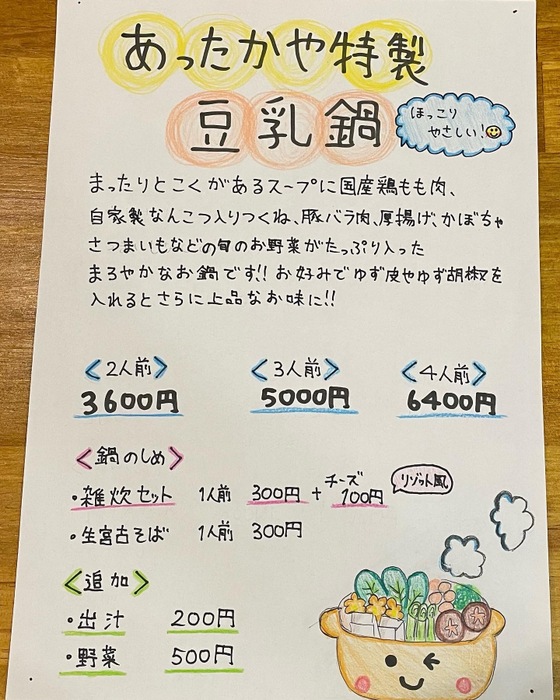 あったかや特製
豆乳鍋
ほっこり
やさしい!
まったりとこくがあるスープに国産鶏もも肉、
自家製なんこつ入りつくね、豚バラ肉、厚揚げ、かぼちゃ
さつまいもなどの旬のお野菜がたっぷり入った
まろやかなお鍋です!! お好みでゆず皮やゆず胡椒を
入れるとさらに上品なお味に!!
<2人前> <3人前> <4人前>
3600円 5000円 6400円
<鍋のしめ>
・雑炊セット 1人前 300円 + チーズ 100円 リゾット風
・生宮古そば 1人前 300円
<追加>
・出汁 200円
・野菜 500円